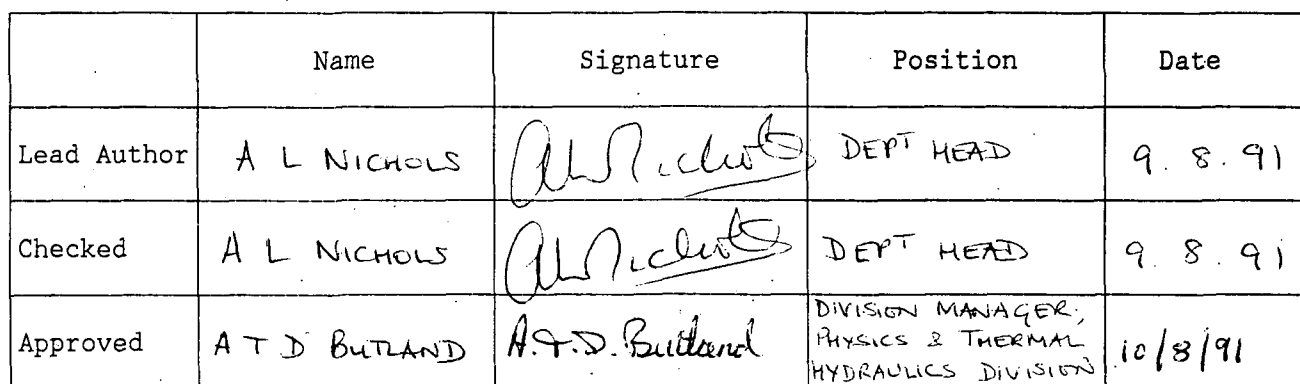 Name Signature Position Date
Lead Author A L NICHOLS AL Nichols DEPT HEAD 9. 8. 91
Checked A L NICHOLS AL Nichols DEPT HEAD 9. 8. 91
Approved A T D BUTLAND A.T.D. Butland DIVISION MANAGER,
PHYSICS & THERMAL
HYDRAULICS DIVISION 10/8/91